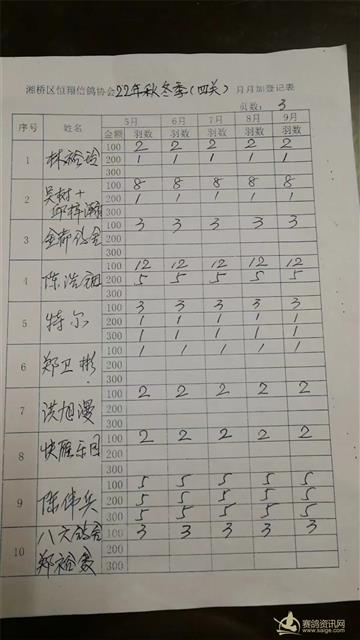 湘桥区恒翔信鸽协会22年秋冬季(四关) 月月加登记表
页数: 3
序号 姓名 5月 6月 7月 8月 9月
金额 羽数 羽数 羽数 羽数 羽数
1 林裕玲 100 2 2 2 2 2
200 1 1 1 1 1
300
2 吴树+ 100 8 8 8 8 8
200 1 1 1 1 1
300
3 100 3 3 3 3 3
200
300
4 陈浩 100 12 12 12 12 12
200 5 5 5 5 5
300
5 特尔 100 3 3 3 3 3
200 1 1 1 1 1
300 1 1 1 1 1
6 郑卫彬 100 1 1 1 1 1
200
300
7 洪旭漫 100 2 2 2 2 2
200
300
8 快雁乐园 100 2 2 2 2 2
200
300
9 陈伟兵 100 5 5 5 5 5
200 5 5 5 5 5
300 5 5 5 5 5
10 八六鸽舍 100 3 3 3 3 3
200
郑裕 300
赛鸽资讯网
www.saige.com